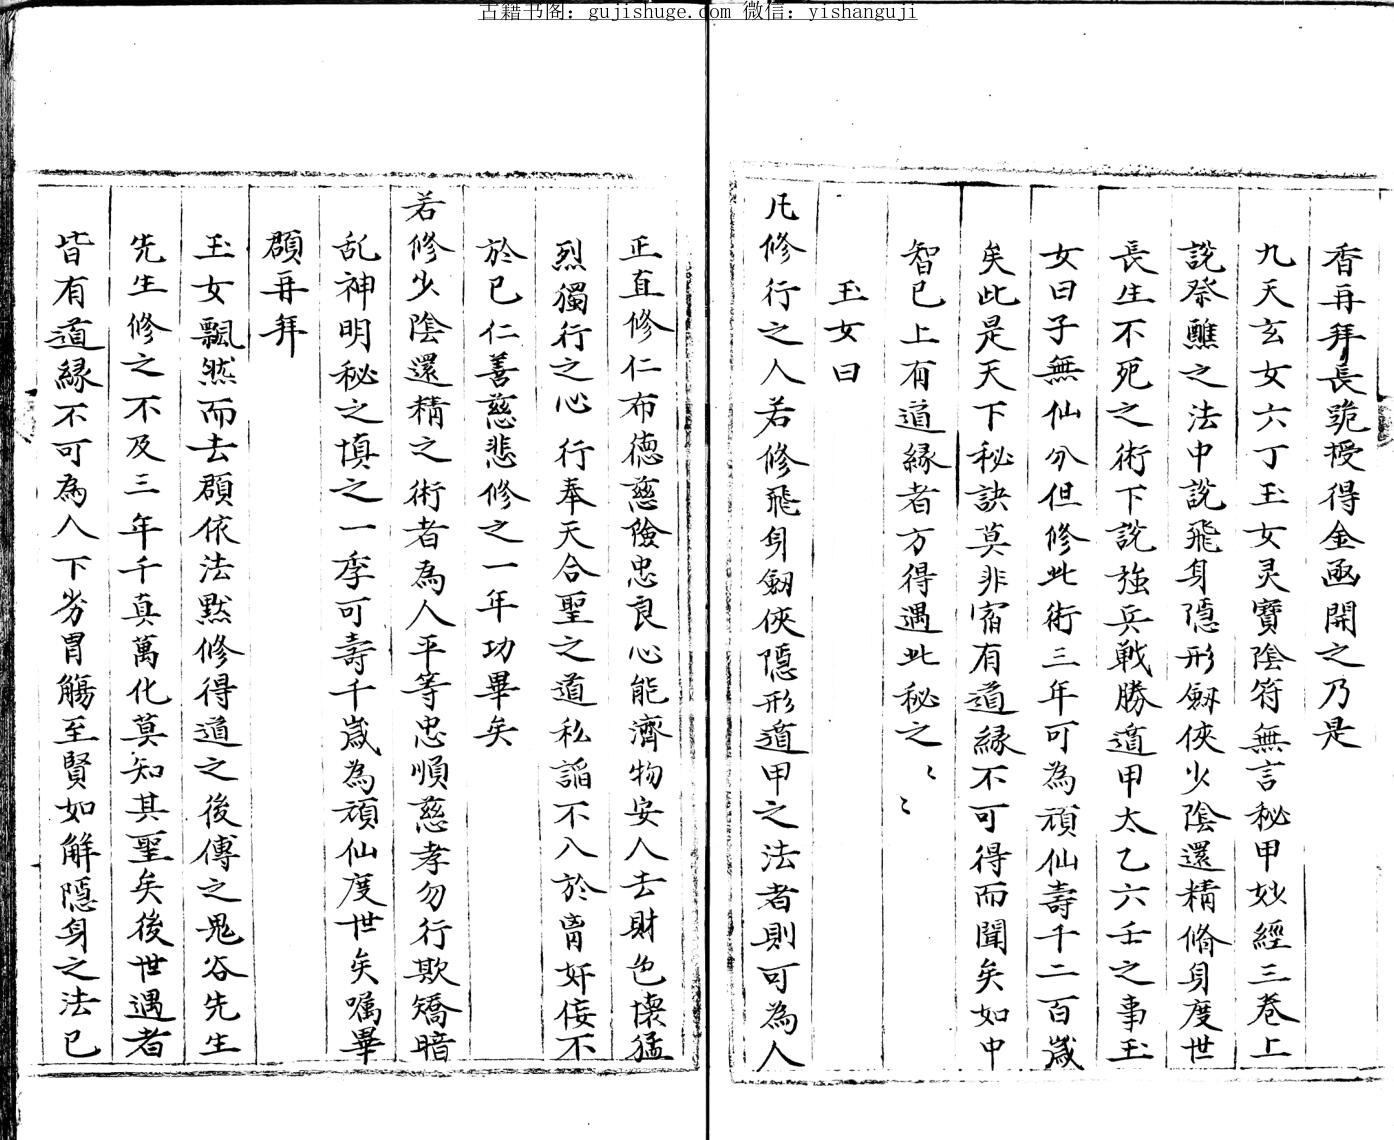 古籍书阁：gujishuge.com 微信：yishanguji
香再拜長跪授得金函開之乃是
九天玄女六丁玉女灵寶陰符無言秘甲妙經三卷上
說祭醮之法中說飛身隱形劔俠少陰還精脩身度世
長生不死之術下說強兵戰勝遁甲太乙六壬之事玉
女曰子無仙分但修此術三年可為頑仙壽千二百歲
矣此是天下秘訣莫非宿有道緣不可得而聞矣如中
智已上有道緣者方得遇此秘之〻〻
玉女曰
凡修行之人若修飛身劔俠隱形遁甲之法者則可為人
正直修仁布德慈險忠良心能濟物安人去財色懐猛
烈獨行之心行奉天合聖之道私謟不入於胷奸侫不
於已仁善慈悲修之一年功畢矣
若修少陰還精之術者為人平等忠順慈孝勿行欺矯暗
乱神明秘之慎之一季可壽千歲為頑仙度世矣囑畢
頵再拜
玉女飄然而去頵依法默修得道之後傳之鬼谷先生
先生修之不及三年千真萬化莫知其聖矣後世遇者
皆有道緣不可為人下劣胃觴至賢如解隱身之法已